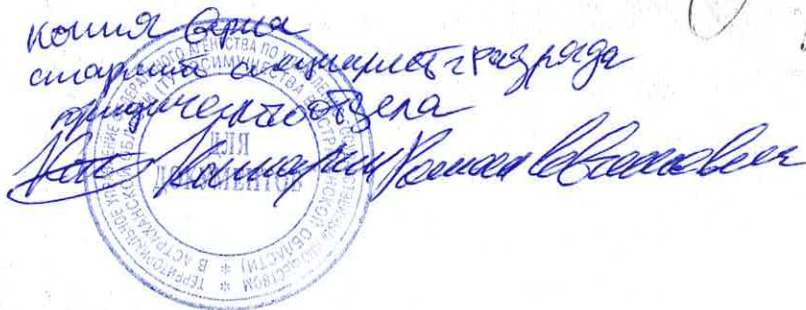 копия верна
старший специалист 2 разряда
юридического отдела
ДЛЯ
ДОКУМЕНТОВ
ТЕРРИТОРИАЛЬНОЕ УПРАВЛЕНИЕ ФЕДЕРАЛЬНОГО АГЕНТСТВА ПО УПРАВЛЕНИЮ ГОСУДАРСТВЕННЫМ ИМУЩЕСТВОМ
В АСТРАХАНСКОЙ ОБЛАСТИ
РОСИМУЩЕСТВА В АСТРАХАНСКОЙ ОБЛАСТИ)